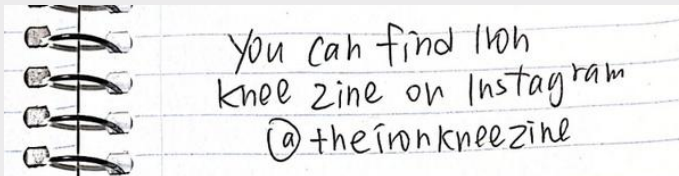 You can find Iron
Knee Zine on Instagram
@theironkneezine